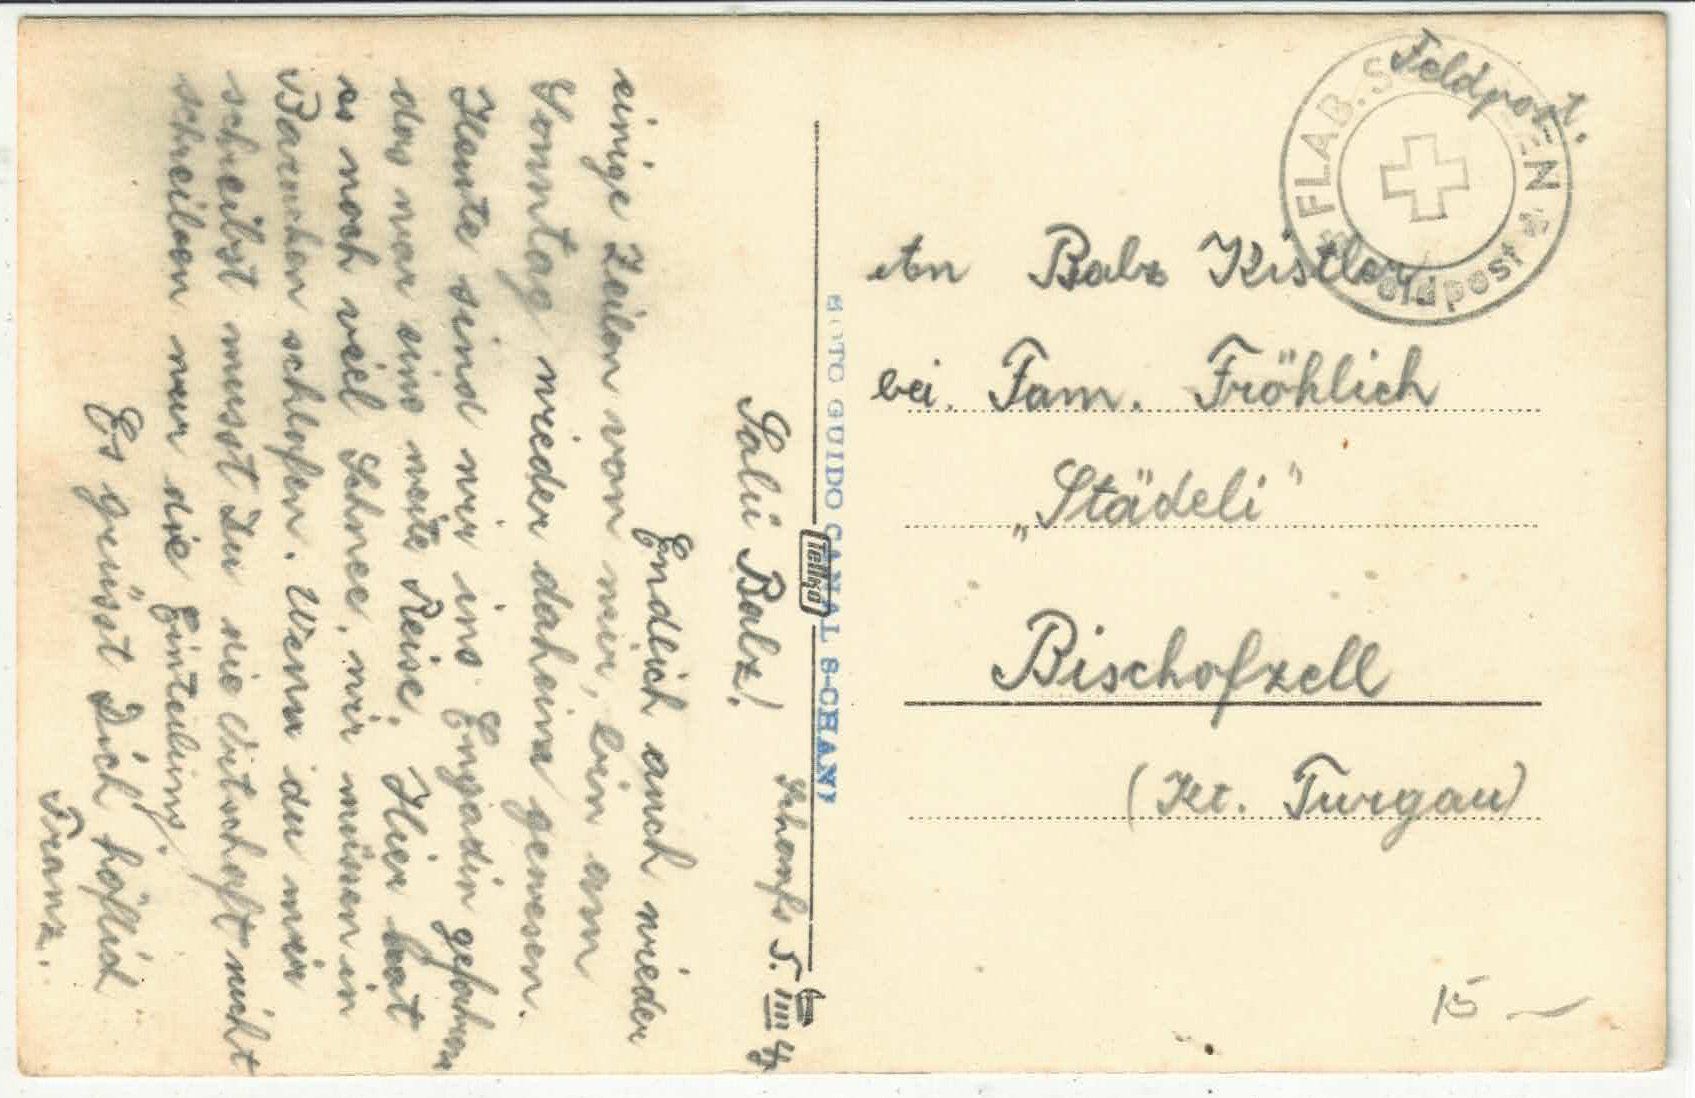 Feldpost.
FLAB. S EN
Feldpost
An Balz Kistler
bei Fam. Fröhlich
„Städeli"
Bischofzell
(Kt. Turgau)
15
FOTO GUIDO CANAL S-CHANF
Tellko
Schanfs 5. III
Salü Balz!
Endlich auch wieder
einige Zeilen von mir, bin am
Sonntag wieder daheim gewesen.
Heute sind wir ins Engadin gefahren
das war eine weite Reise. Hier hat
es noch viel Schnee, wir müssen in
Baracken schlafen. Wenn du mir
schreibst musst Du die Ortschaft nicht
schreiben nur die Einteilung.
Es grüsst Dich höflich
Franz.